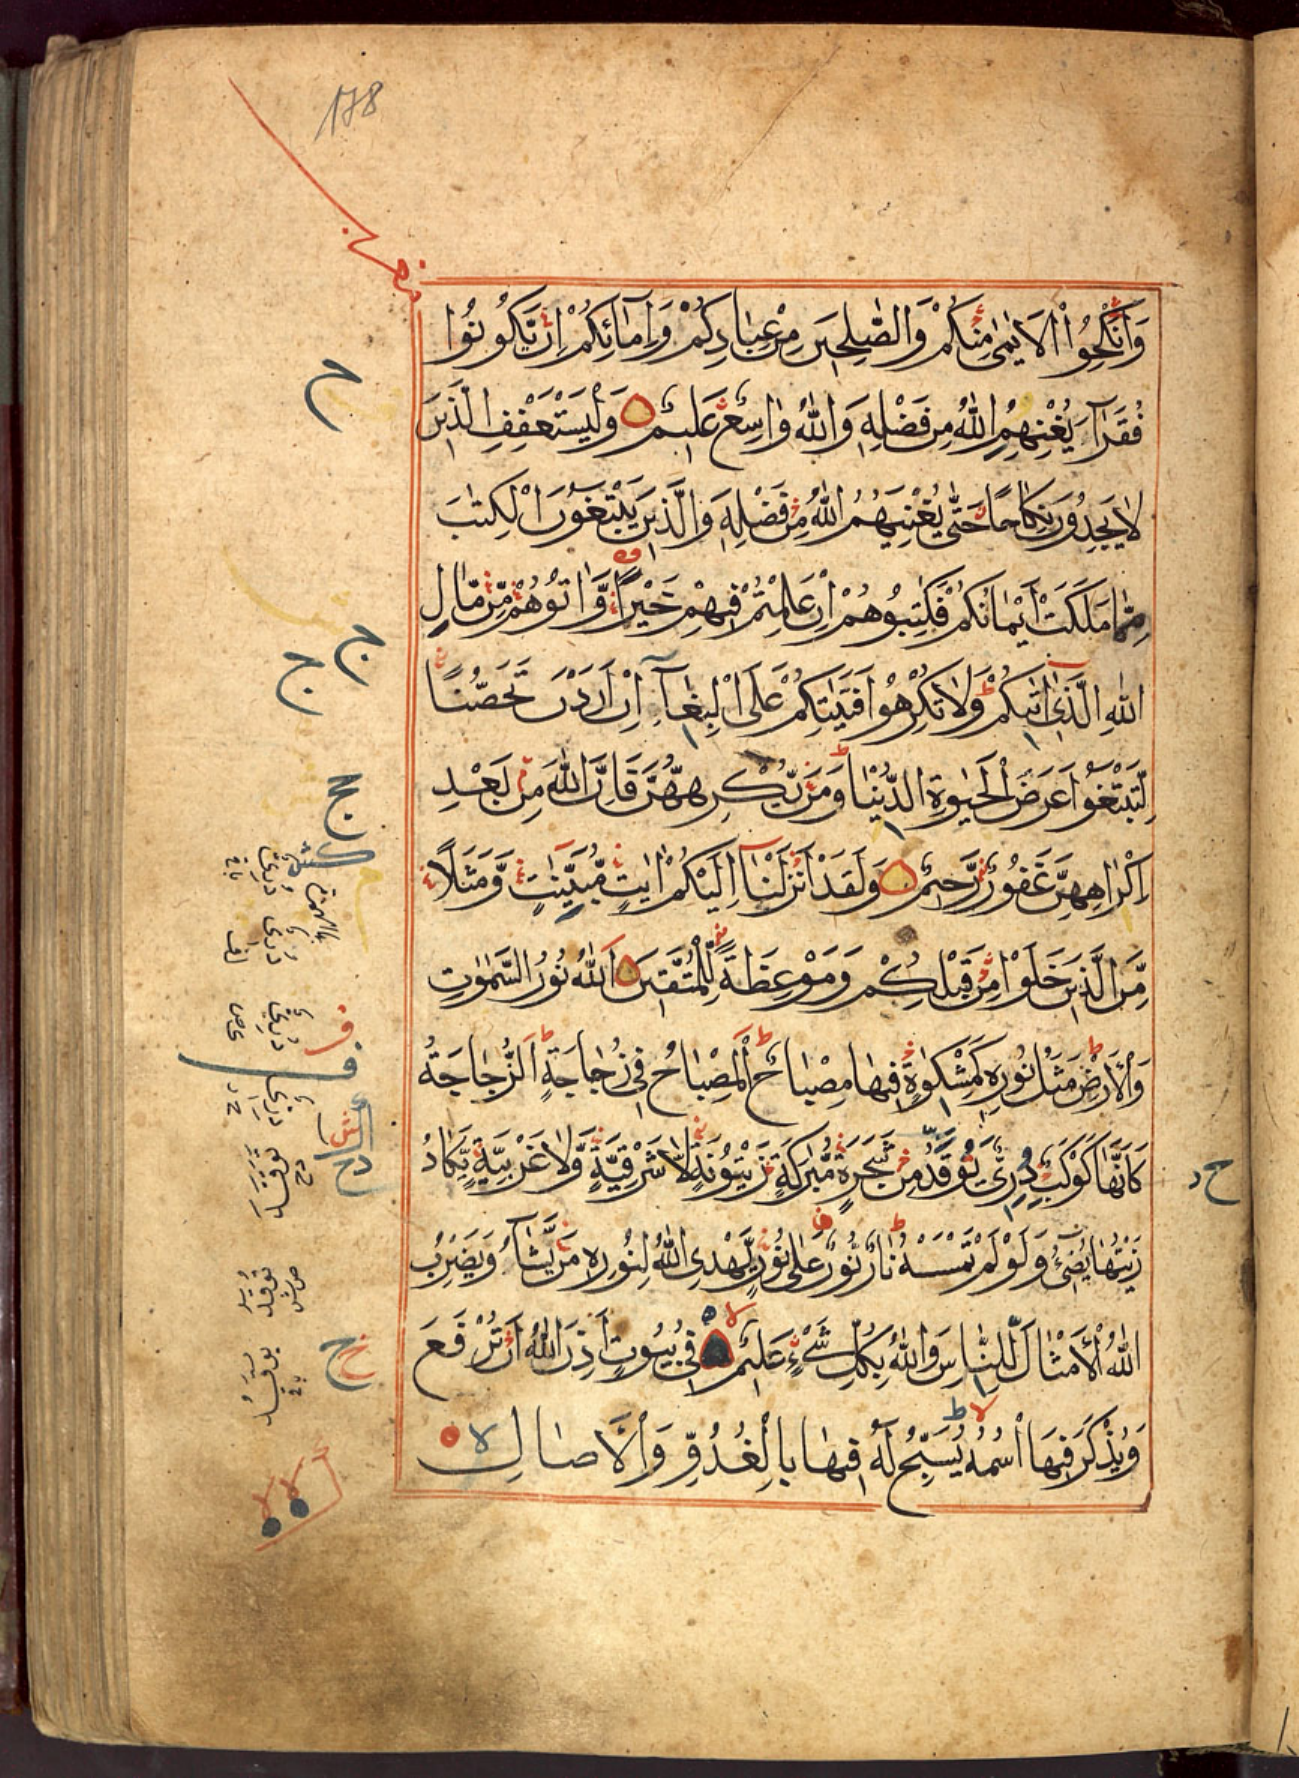 178
وَاَنْكِحُوا الْاَيٰمٰى مِنْكُمْ وَالصّٰلِحٖينَ مِنْ عِبَادِكُمْ وَاِمَائِكُمْ اِنْ يَكُونُوا
فُقَرَاءَ يُغْنِهِمُ اللّٰهُ مِنْ فَضْلِهٖ وَاللّٰهُ وَاسِعٌ عَلٖيمٌ وَلْيَسْتَعْفِفِ الَّذٖينَ
لَا يَجِدُونَ نِكَاحًا حَتّٰى يُغْنِيَهُمُ اللّٰهُ مِنْ فَضْلِهٖ وَالَّذٖينَ يَبْتَغُونَ الْكِتٰبَ
مِمَّا مَلَكَتْ اَيْمَانُكُمْ فَكَاتِبُوهُمْ اِنْ عَلِمْتُمْ فٖيهِمْ خَيْرًا وَّاٰتُوهُمْ مِّنْ مَّالِ
اللّٰهِ الَّذٖى اٰتٰيكُمْ وَلَا تُكْرِهُوا فَتَيَاتِكُمْ عَلَى الْبِغَاءِ اِنْ اَرَدْنَ تَحَصُّنًا
لِّتَبْتَغُوا عَرَضَ الْحَيٰوةِ الدُّنْيَا وَمَنْ يُّكْرِهْهُّنَّ فَاِنَّ اللّٰهَ مِنْ بَعْدِ
اِكْرَاهِهِنَّ غَفُورٌ رَّحٖيمٌ وَلَقَدْ اَنْزَلْنَا اِلَيْكُمْ اٰيٰتٍ مُّبَيِّنٰتٍ وَّمَثَلًا
مِّنَ الَّذٖينَ خَلَوْا مِنْ قَبْلِكُمْ وَمَوْعِظَةً لِّلْمُتَّقٖينَ اَللّٰهُ نُورُ السَّمٰوٰتِ
وَالْاَرْضِ مَثَلُ نُورِهٖ كَمِشْكٰوةٍ فٖيهَا مِصْبَاحٌ اَلْمِصْبَاحُ فٖى زُجَاجَةٍ اَلزُّجَاجَةُ
كَاَنَّهَا كَوْكَبٌ دُرِّىٌّ تَوَقَّدَ مِنْ شَجَرَةٍ مُّبٰرَكَةٍ زَيْتُونَةٍ لَّا شَرْقِيَّةٍ وَّلَا غَرْبِيَّةٍ يَّكَادُ
زَيْتُهَا يُضٖىءُ وَلَوْ لَمْ تَمْسَسْهُ نَارٌ نُورٌ عَلٰى نُورٍ يَّهْدِى اللّٰهُ لِنُورِهٖ مَنْ يَّشَاءُ وَيَضْرِبُ
اللّٰهُ الْاَمْثَالَ لِلنَّاسِ وَاللّٰهُ بِكُلِّ شَىْءٍ عَلٖيمٌ فٖى بُيُوتٍ اَذِنَ اللّٰهُ اَنْ تُرْفَعَ
وَيُذْكَرَ فٖيهَا اسْمُهُ يُسَبِّحُ لَهُ فٖيهَا بِالْغُدُوِّ وَالْاٰصَالِ